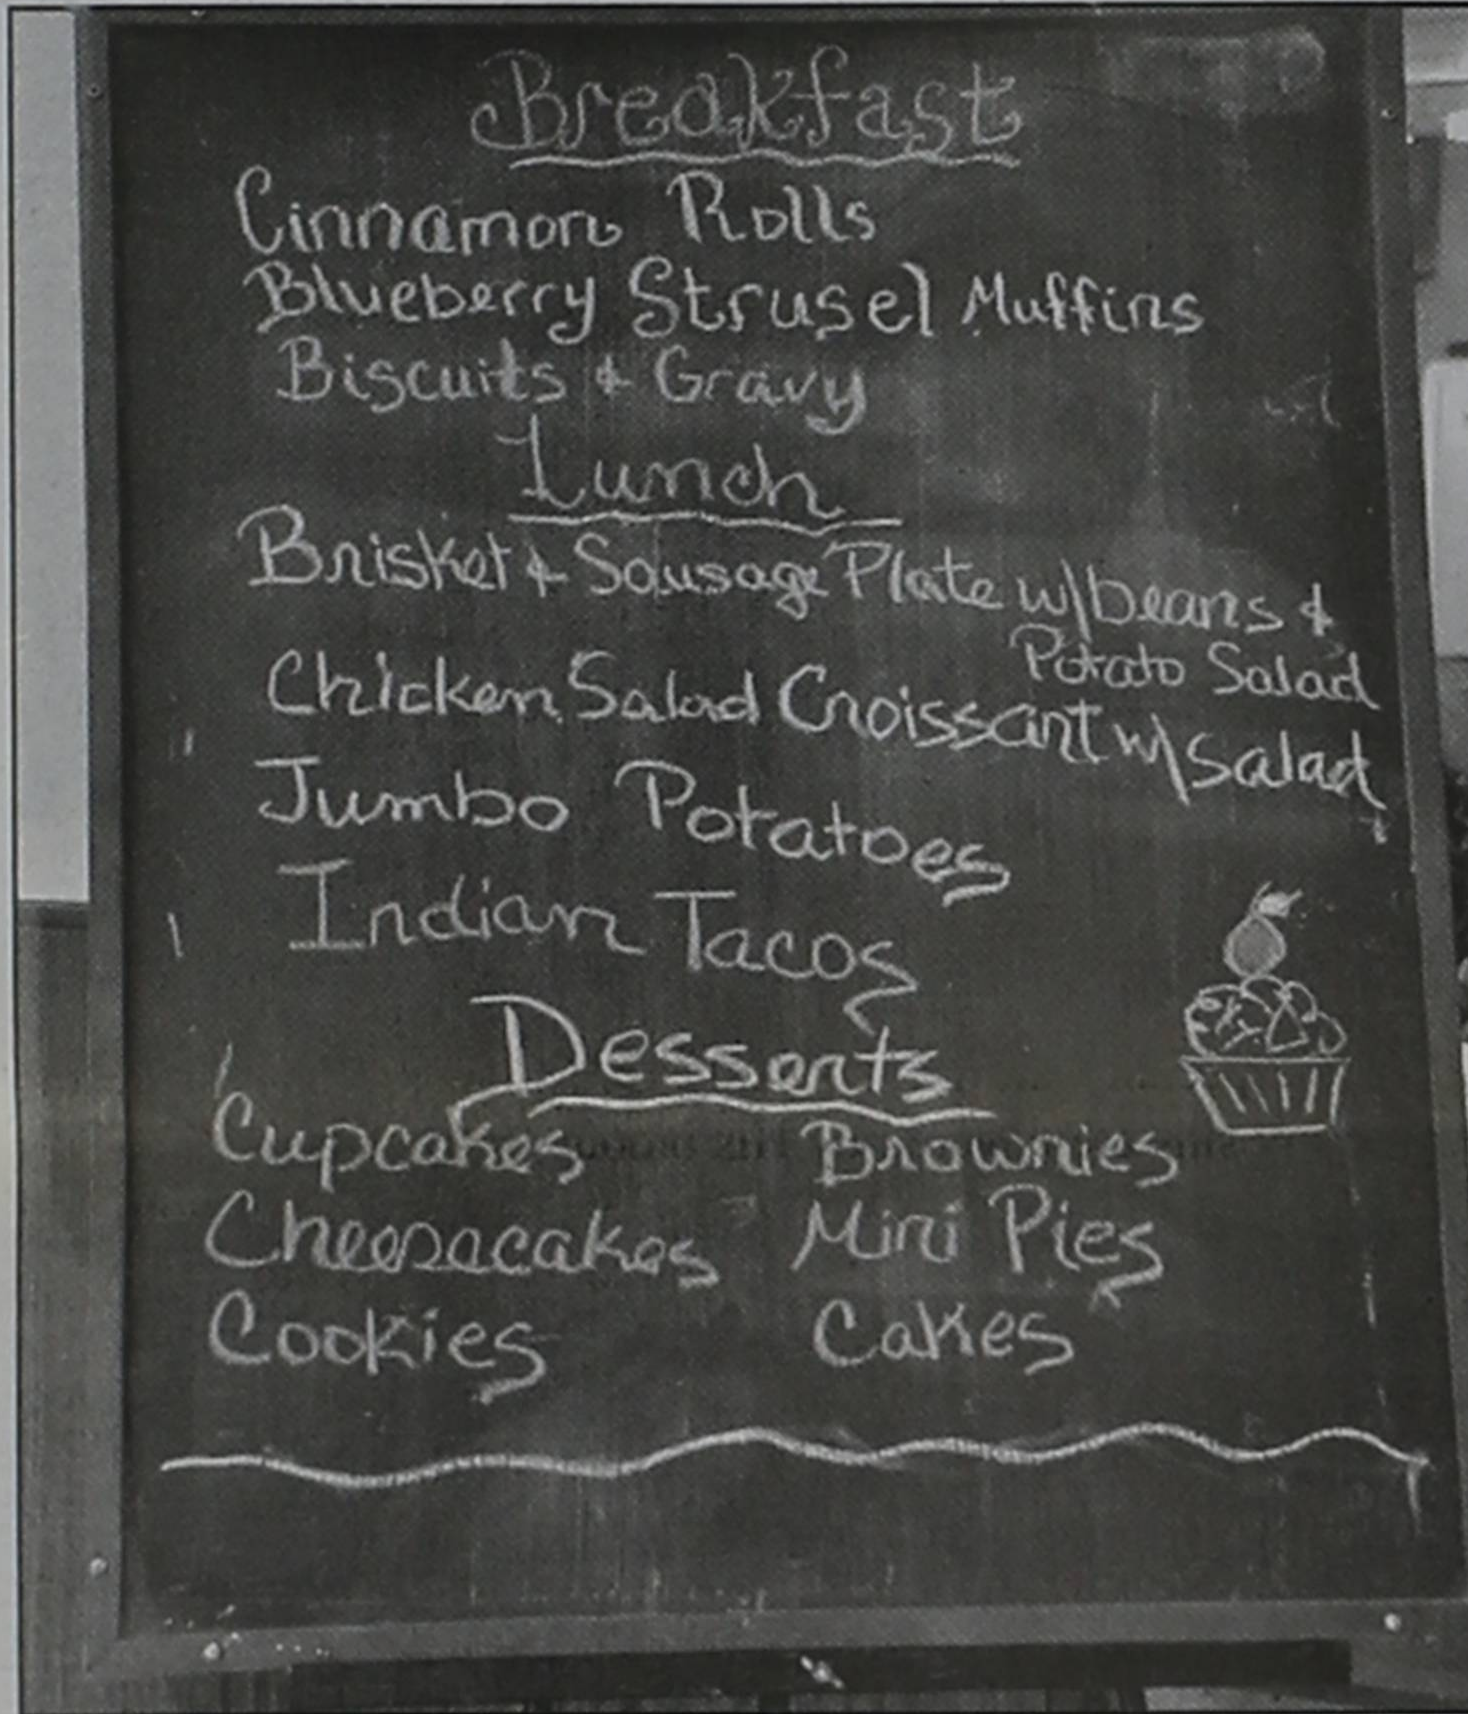 Breakfast
Cinnamon Rolls
Blueberry Strusel Muffins
Biscuits & Gravy
Lunch
Brisket & Sausage Plate w/beans &
Potato Salad
Chicken Salad Croissant w/Salad
Jumbo Potatoes
Indian Tacos
Desserts
Cupcakes Brownies
Cheesecakes Mini Pies
Cookies Cakes